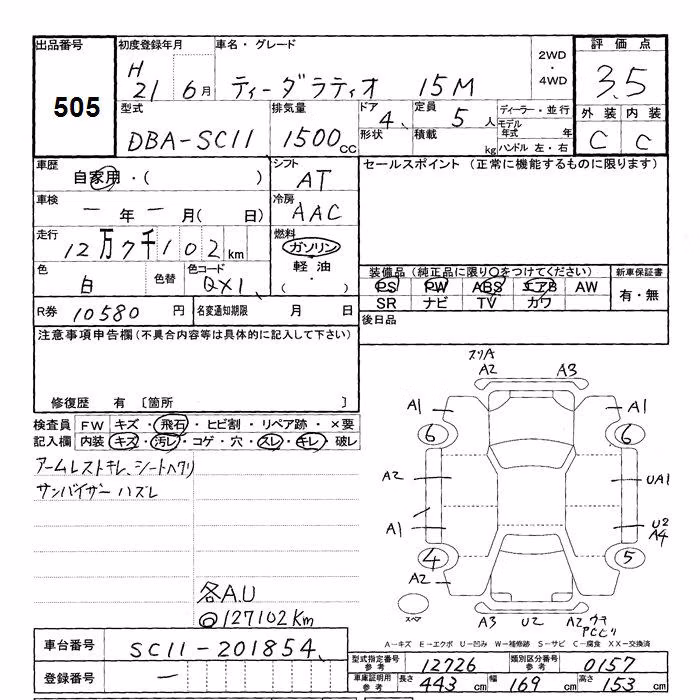 出品番号
505
初度登録年月
H 21 6月
車名・グレード
ティーダラティオ 15M
2WD
・
4WD
評価点
3.5
外装 内装
C C
型式
DBA-SC11
排気量
1500cc
ドア
4
形状
定員
5人
積載
kg
ディーラー・並行
モデル年式 年
ハンドル 左・右
車歴
自家用・( )
シフト
AT
車検
一年一月( 日)
冷房
AAC
走行
12万7千102km
燃料
ガソリン
・
軽油
・
( )
色
白
色替
色コード
QX1
R券 10580円
名変通知期限 月 日
セールスポイント (正常に機能するものに限ります)
装備品 (純正品に限り○をつけてください)
PS PW ABS エアB AW
SR ナビ TV カワ
新車保証書
有・無
後日品
注意事項申告欄(不具合内容等は具体的に記入して下さい)
修復歴 有 〔箇所 〕
検査員記入欄
FW キズ・飛石・ヒビ割・リペア跡・×要
内装 キズ・汚レ・コゲ・穴・スレ・キレ・破レ
アームレストキレ、シートヘタリ
サンバイザーハズレ
各A.U
@127102Km
スリA
A2 A3
A1 A1
6 6
A2 UA1
A1 U2
A4
4 5
A2
スペア
A3 U2 A2
A-キズ E-エクボ U-凹み W-補修跡 S-サビ C-腐食 XX-交換済
車台番号 SC11-201854
登録番号 一
型式指定番号参考 12726
類別区分番号参考 0157
車庫証明用参考
長さ 443cm 幅 169cm 高さ 153cm